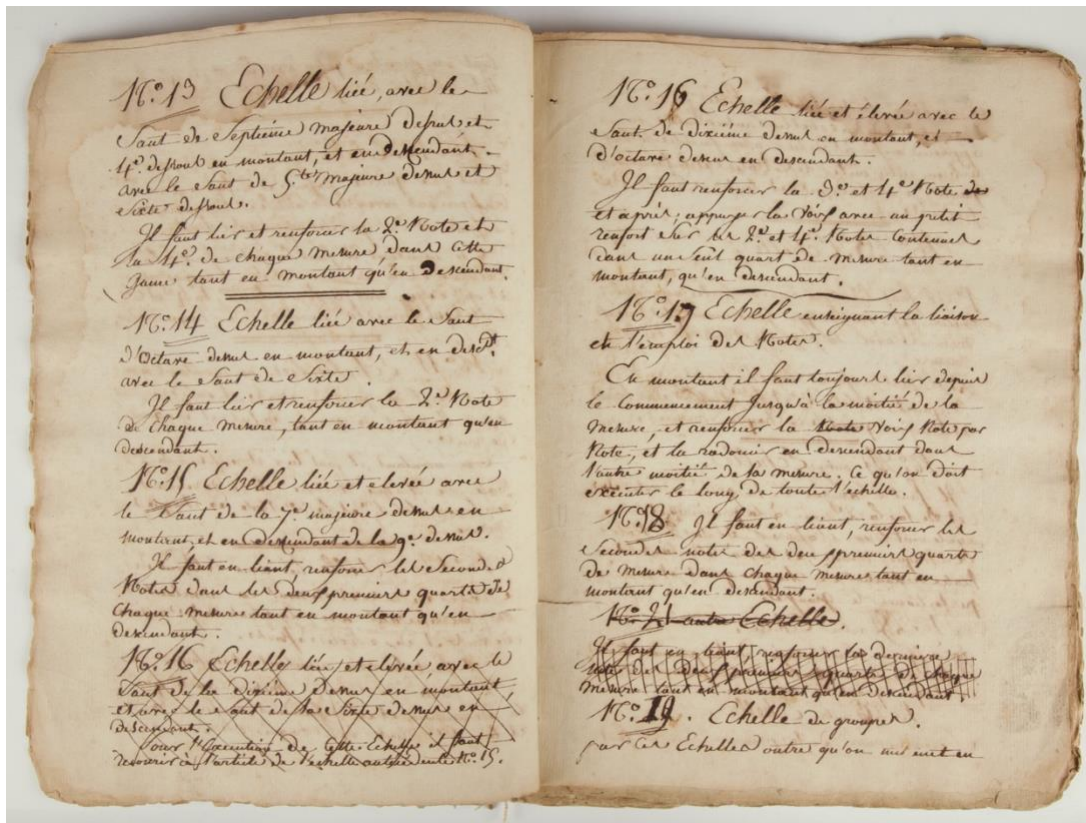 N.º 13 Echelle liée, avec le
Saut de Septiéme majeure dessus et
4.e dessous en montant, et en descendant
avec le Saut de 5.te majeure dessus et
Sixte dessous.
Il faut lier et renforcer la 2.e Note et
la 4.e de chaque mesure dans cette
game tant en montant qu'en descendant.
N.º 14 Echelle liée avec le Saut
d'Octave dessus en montant, et en desc.t
avec le Saut de Sixte.
Il faut lier et renforcer la 2.e Note
de chaque mesure, tant en montant qu'en
descendant.
N.º 15 Echelle liée et elevée avec
le Saut de la 7.e majeure dessus en
montant, et en descendant de la 9.e dessus.
Il faut en liant, renforcer les Secondes
Notes dans les deux premiers quarts de
chaque mesure tant en montant qu'en
descendant.
N.º 16 Echelle liée et elevée, avec le
Saut de la dixiéme dessus en montant
et avec le Saut de la Sixte dessus en
descendant.
Pour l'Execution de cette Echelle il faut
recourir à l'article de l'echelle antecedente N.º 15.
N.º 16 Echelle liée et élevée avec le
Saut de dixiéme dessus en montant, et
d'octave dessus en descendant.
Il faut renforcer la 3.e et 4.e Note
et après; appuyer la Voix avec un petit
renfort sur les 2.e et 4.e Notes contenues
dans un seul quart de mesure tant en
montant, qu'en descendant.
N.º 17 Echelle enseignant la liaison
et l'emploi des Notes.
En montant il faut toujours lier depuis
le Commencement jusqu'à la moitié de la
mesure, et renforcer la Voix Note par
Note, et la radoucir en descendant dans
l'autre moitié de la mesure. Ce qu'on doit
executer le long de toute l'echelle.
N.º 18 Il faut en liant, renforcer les
Secondes notes des deux premiers quarts
de mesure dans chaque mesure tant en
montant qu'en descendant.
N.º 21 autre Echelle.
Il faut en liant renforcer la derniere
note des deux premiers quarts de chaque
mesure tant en montant qu'en descendant.
N.º 19. Echelle de groupes.
par ces Echelles outre qu'on met en